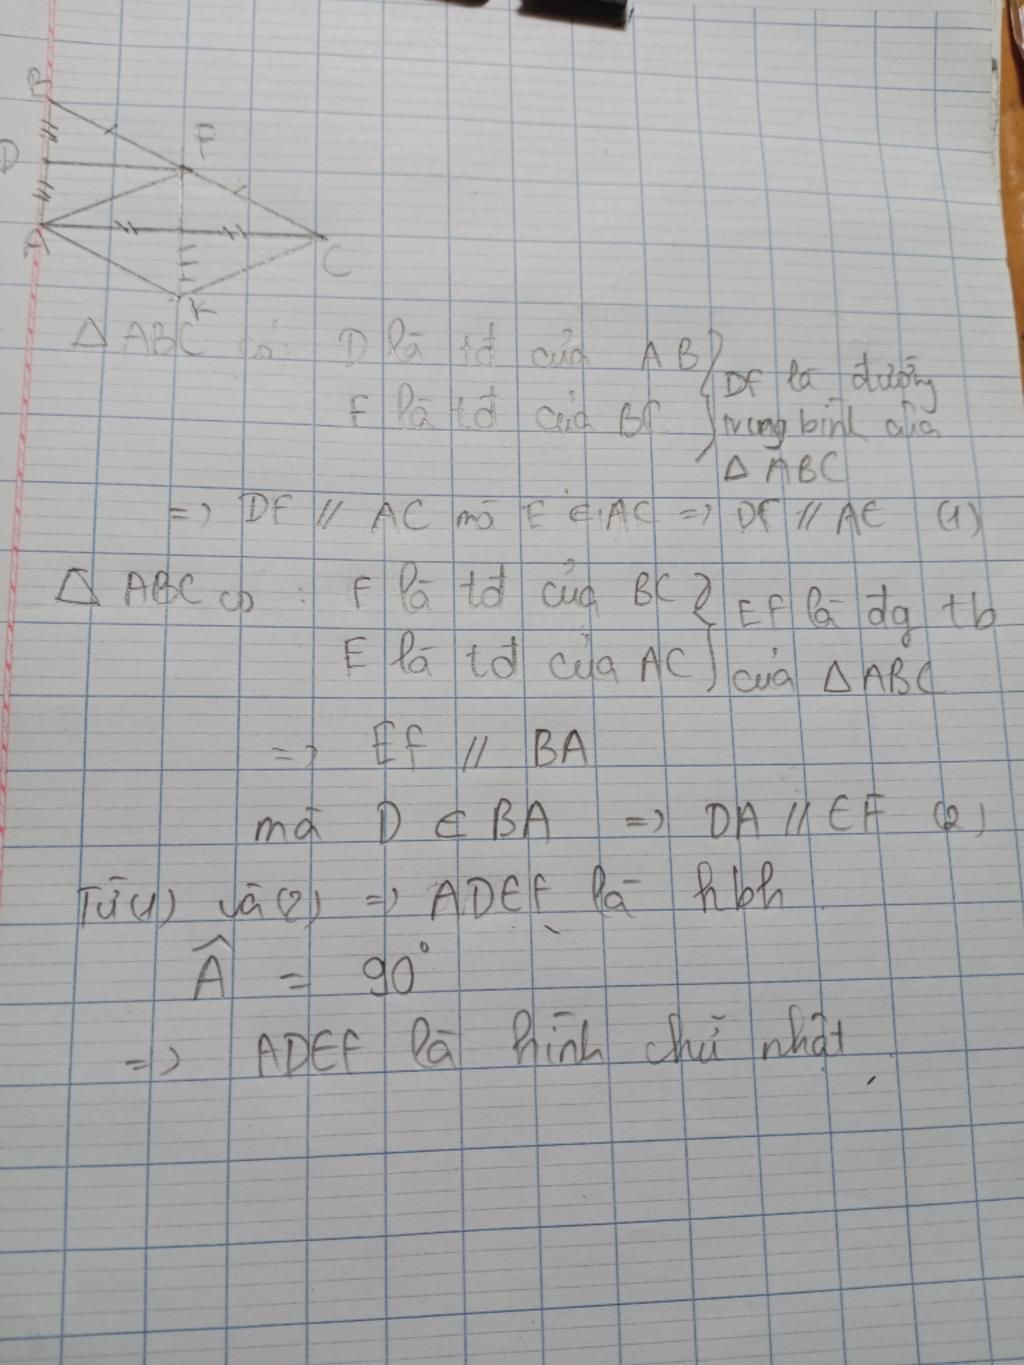 B
D
F
A
E
C
K
△ ABC có: D là tđ của AB
F là tđ của BC
DF là đường
trung bình của
△ ABC
=> DF // AC mà E ∈ AC => DF // AE (1)
△ ABC có : F là tđ của BC
E là tđ của AC
EF là đg tb
của △ ABC
=> EF // BA
mà D ∈ BA => DA // EF (2)
Từ (1) và (2) => ADEF là hbh
Â = 90°
=> ADEF là hình chữ nhật